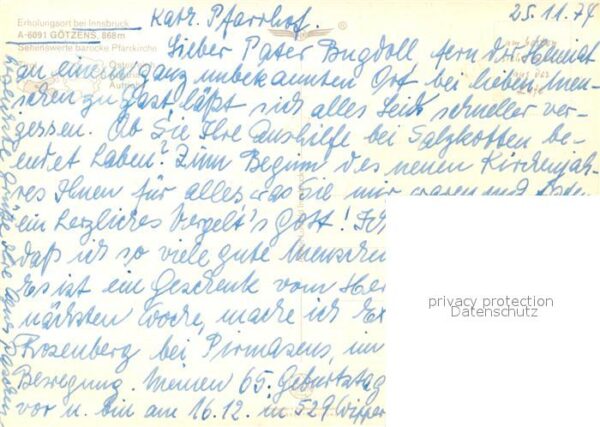 Erholungsort bei Innsbruck
A-6091 GÖTZENS, 868m
Sehenswerte barocke Pfarrkirche
Kath. Pfarrhof.
25.11.74
Lieber Pater Bugdoll fern der Heimat
an einem ganz unbekannten Ort bei lieben Men-
schen zu Gast läßt sich alles Leid schneller ver-
gessen. Ob Sie Ihre Aushilfe bei Salzkotten be-
endet haben? Zum Beginn des neuen Kirchenjah-
res Ihnen für alles was Sie mir waren und
ein herzliches Vergelt's Gott! Ich
daß ich so viele gute Menschen
Es ist ein Geschenk vom Her
nächsten Woche, mache ich Ex
Rosenberg bei Pirmasens, im
Bewegung. Meinen 65. Geburtstag
vor u. bin am 16.12. in 529 Wipper
privacy protection
Datenschutz